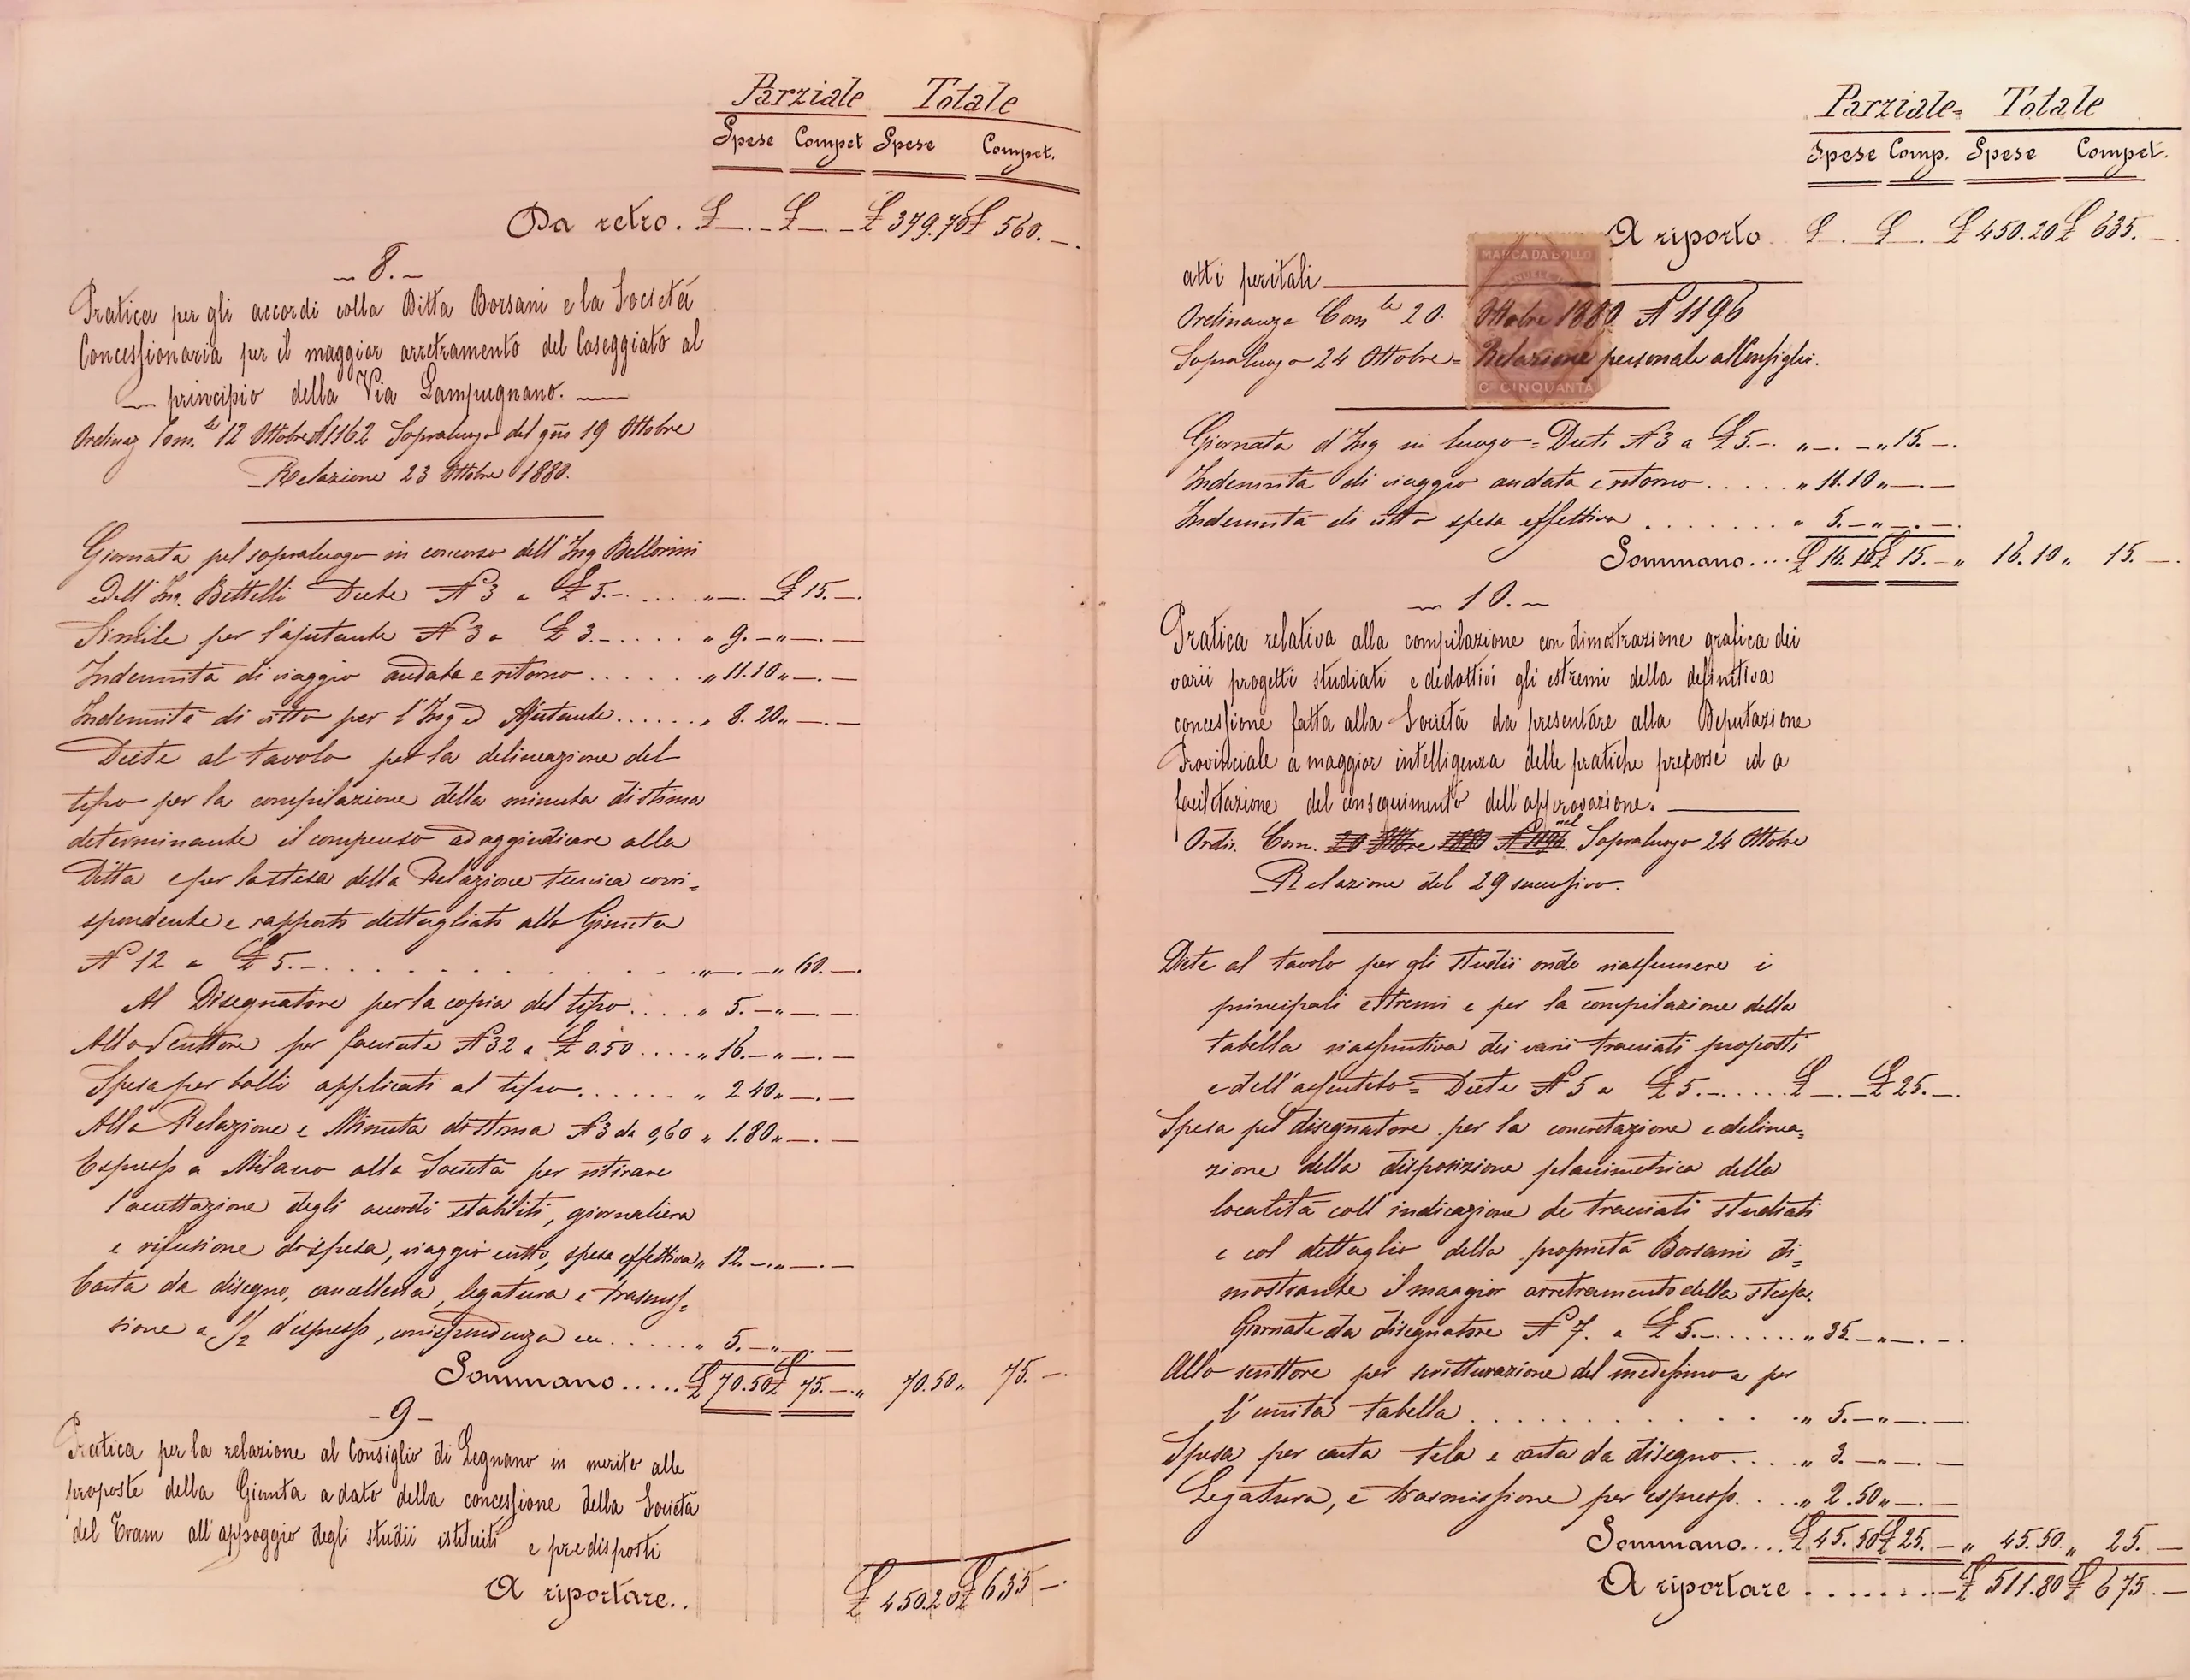 Parziale Totale
Spese Compet Spese Compet.
Da retro. £ —.– £ —. – £ 379.70 £ 560. –.
– 8. –
Pratica per gli accordi colla Ditta Borsani e la Società
Concessionaria per il maggior arretramento del Caseggiato al
— principio della Via Lampugnano. —
Ordinaz Com.le 12 Ottobre N 1162 Sopraluogo del gno 19 Ottobre
Relazione 23 Ottobre 1880.
Giornata pel sopraluogo in concorso dell'Ing Bellorini
e dell'Ing. Bettelli Diete N 3 a £ 5.–..... „ —. £ 15. –.
Simile per l'ajutante N 3 a £ 3.–..... „ 9. – „ —. —
Indennità di viaggio andata e ritorno ...... „ 11.10 „ —. —
Indennità di vitto per l'Ing ed Ajutante ...... „ 8. 20 „ —. —
Diete al tavolo per la delineazione del
tipo per la compilazione della minuta di stima
determinante il compenso ad aggiudicare alla
Ditta e per la stesa della Relazione tecnica corri=
spondente e rapporto dettagliato alla Giunta
N 12 a £ 5.–. . . . . . . . . . . . „ —. – „ 60. —.
Al Disegnatore per la copia del tipo .... „ 5. – „ —. —
Allo Scrittore per facciate N 32 a £ 0.50 .... „ 16. – „ —. —
Spesa per bolli applicati al tipo ...... „ 2.40 „ —. —
Alla Relazione e Minuta di stima N 3 da 0,60 „ 1.80 „ —. —
Espresso a Milano alla Società per ritirare
l'accettazione degli accordi stabiliti, giornaliera
e rifusione di spesa, viaggio vitto, spesa effettiva „ 12. – „ —. —
Carta da disegno, cancelleria, legatura e trasmis=
sione a 1/2 d'espresso, corrispondenza ecc ..... „ 5. – „ —. —
Sommano ..... £ 70.50 £ 75. – „ 70.50 „ 75. –
– 9 –
Pratica per la relazione al Consiglio di Legnano in merito alle
proposte della Giunta a dato della concessione della Società
del Tram all'appoggio degli studii istituiti e predisposti
A riportare.. £ 450.20 £ 635 –
Parziale= Totale
Spese Comp. Spese Compet.
A riporto £ . £ . £ 450.20 £ 635. –
MARCA DA BOLLO
Ct CINQUANTA
atti peritali
Ordinanza Comle 20. Ottobre 1880 N 1196
Sopraluogo 24 Ottobre = Relazione personale al Consiglio.
Giornata d'Ing in luogo = Diete N 3 a £ 5.–. „ —. – „ 15. –.
Indennità di viaggio andata e ritorno ..... „ 11.10 „ —. —
Indennità di vitto spesa effettiva ....... „ 5. – „ —. —
Sommano .... £ 16.10 £ 15. – „ 16.10 „ 15. –.
– 10. –
Pratica relativa alla compilazione con dimostrazione grafica dei
varii progetti studiati e dedottivi gli estremi della definitiva
concessione fatta alla Società da presentare alla Deputazione
Provinciale a maggior intelligenza delle pratiche precorse ed a
facilitazione del conseguimento dell'approvazione.
Ordin. Com. 20 Ottobre 1880 N 1196 nel Sopraluogo 24 Ottobre
Relazione del 29 successivo.
Diete al tavolo per gli studii onde riassumere i
principali estremi e per la compilazione della
tabella riassuntiva dei varii tracciati proposti
e dell'assentito = Diete N 5 a £ 5.–..... £ —. – £ 25. –.
Spesa pel disegnatore per la concretazione e delinea=
zione della disposizione planimetrica della
località coll'indicazione de tracciati studiati
e col dettaglio della proprietà Borsani di=
mostrante il maggior arretramento della stessa.
Giornate da disegnatore N 7. a £ 5.–...... „ 35. – „ —. –
Allo scrittore per scritturazione del medesimo e per
l'unita tabella . . . . . . . . . . „ 5. – „ —. —
Spesa per carta tela e carta da disegno .... „ 3. – „ —. —
Legatura, e trasmissione per espresso. ... „ 2.50 „ —. —
Sommano.... £ 45.50 £ 25. – „ 45.50 „ 25. –
A riportare ........ £ 511.80 £ 675. –